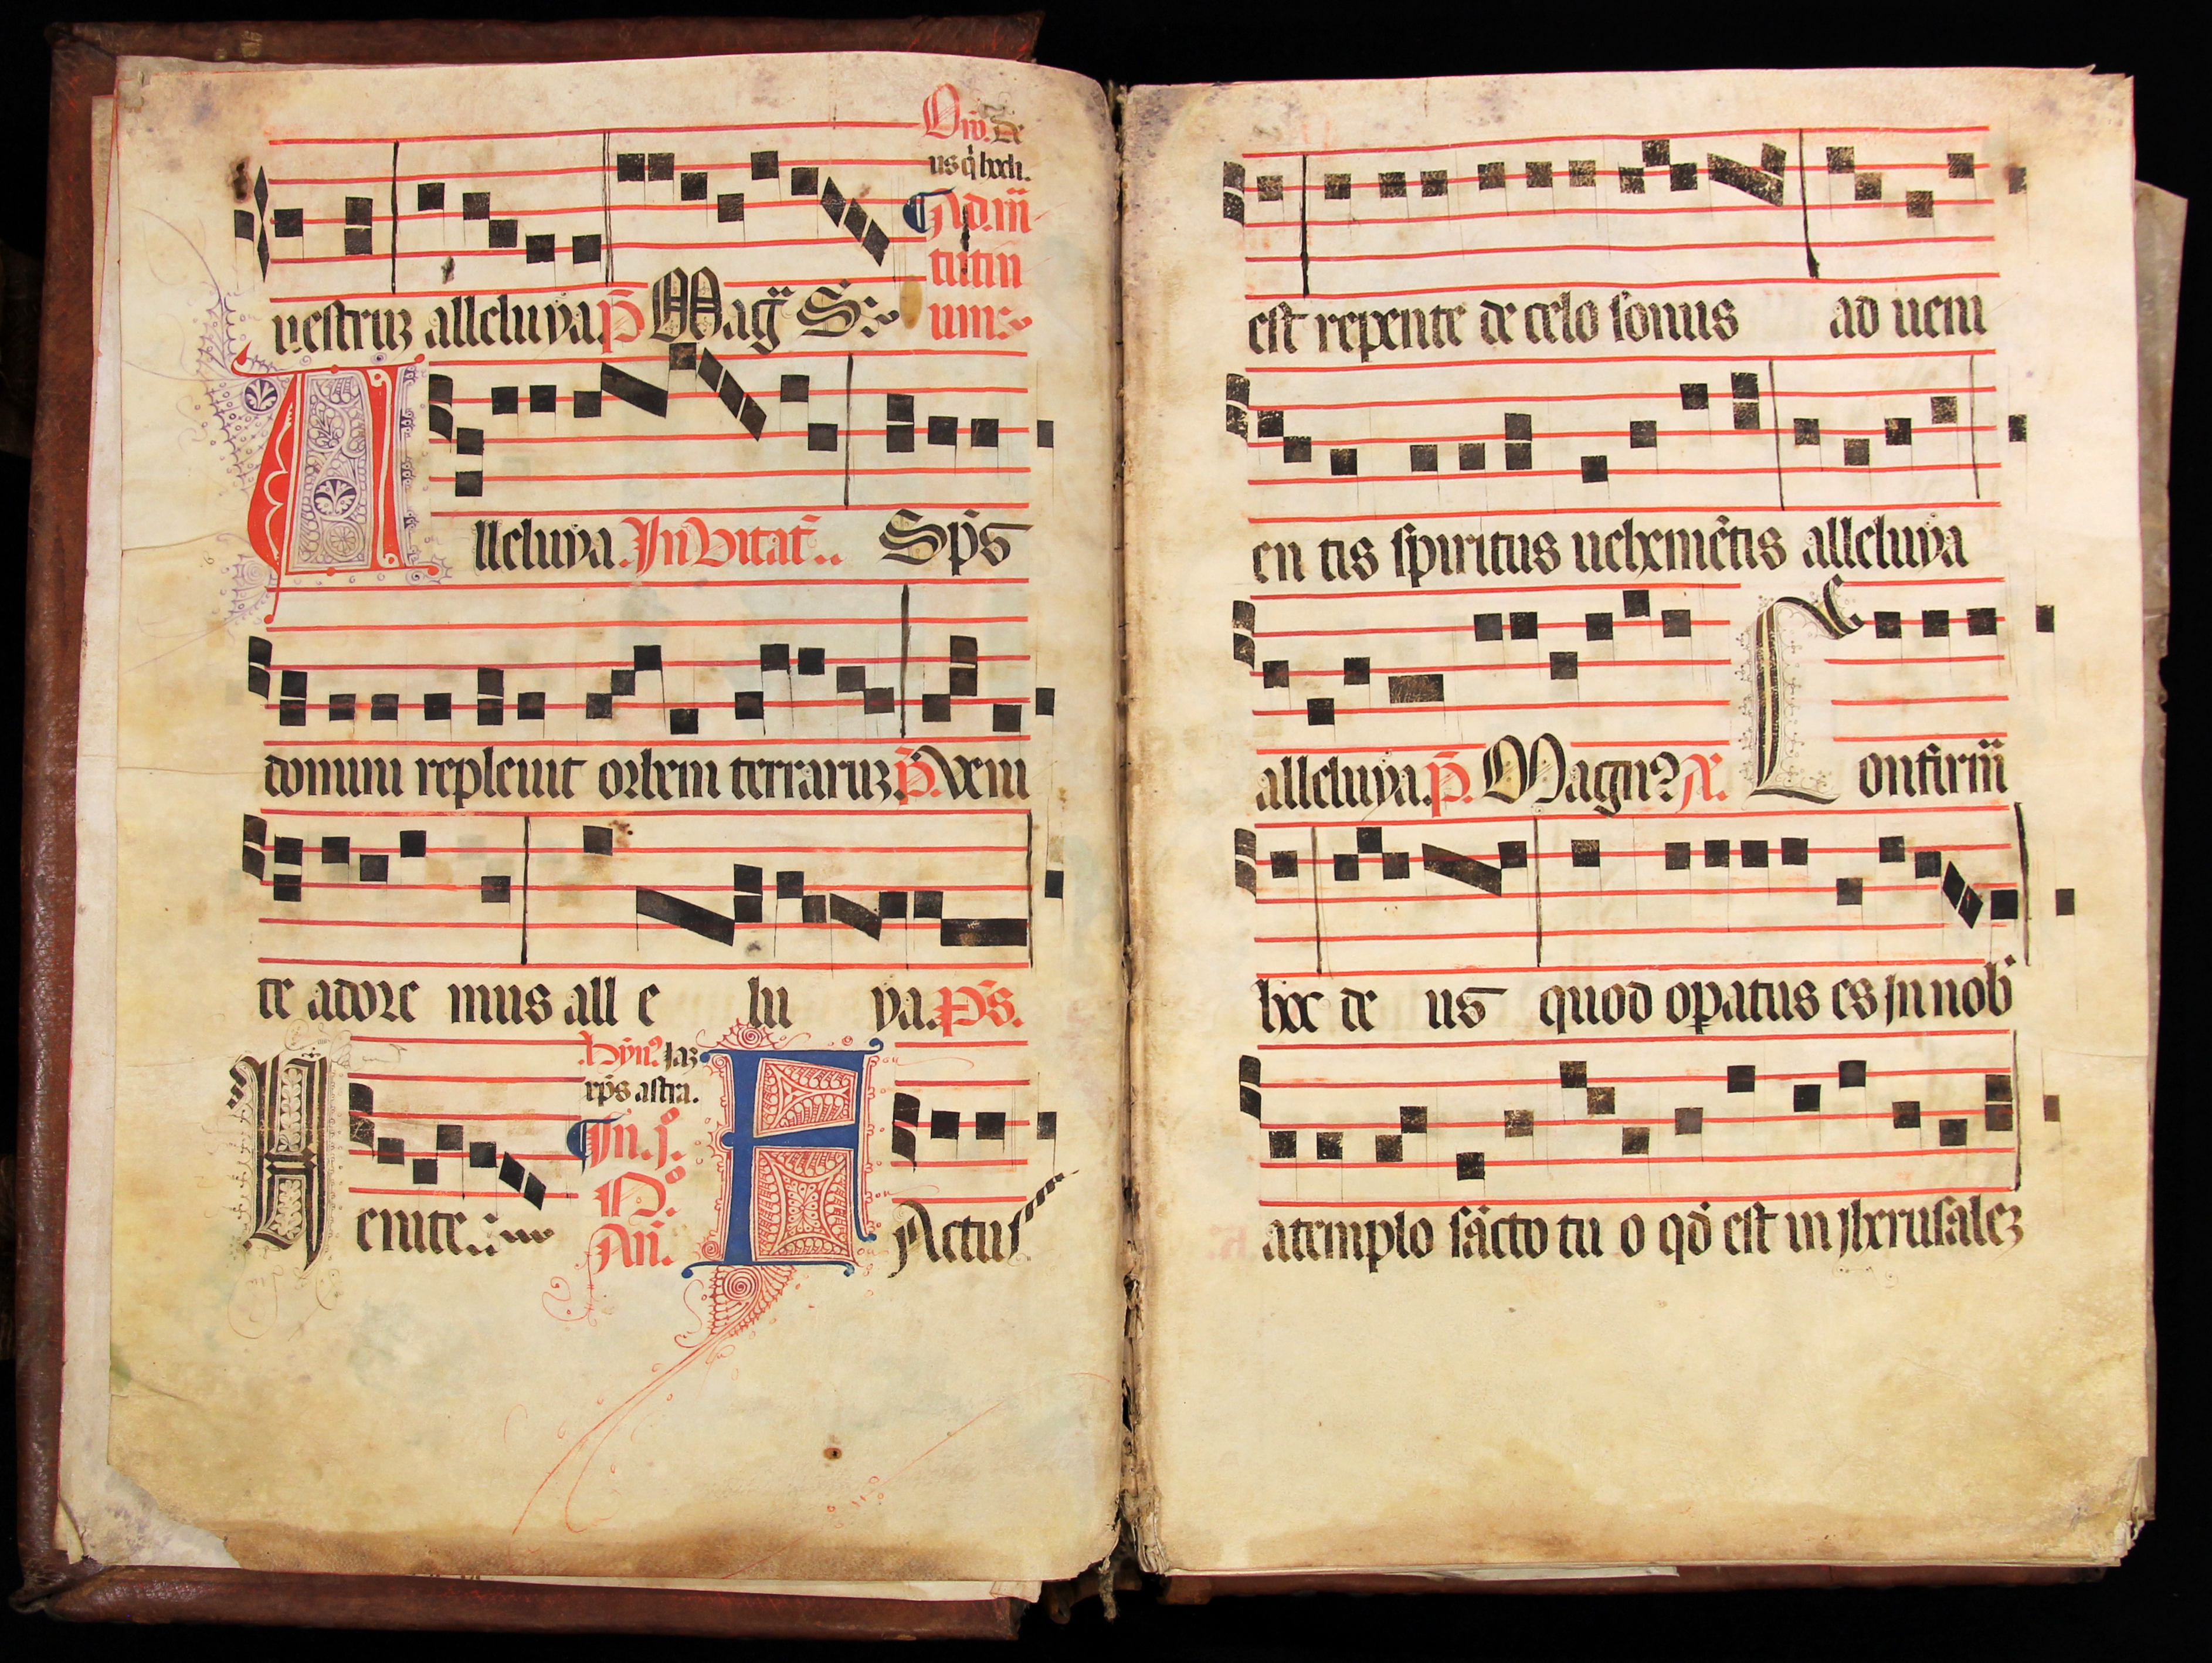 Oro. De
us q̇ hodi.
uestruz alleluya. p̄ Mag̈ S.
Ad m̄
tutin
um.
Alleluya. Invitat̄. Sp̄s
domini repleuit orbem terraruz. p̄. Veni
te adore mus all e lu ya. ps̄.
Venite.
hȳn. Jaz
xp̄s astra.
In. j.
N.º
An̄.
FActus
est repente de celo sonus ad ueni
en tis spiritus uehemētis alleluya
alleluya. p̄. Magn? V. Confirm̄
hoc de us quod opatus es in nob̄
a templo sācto tu o qd̄ est in jherusalez